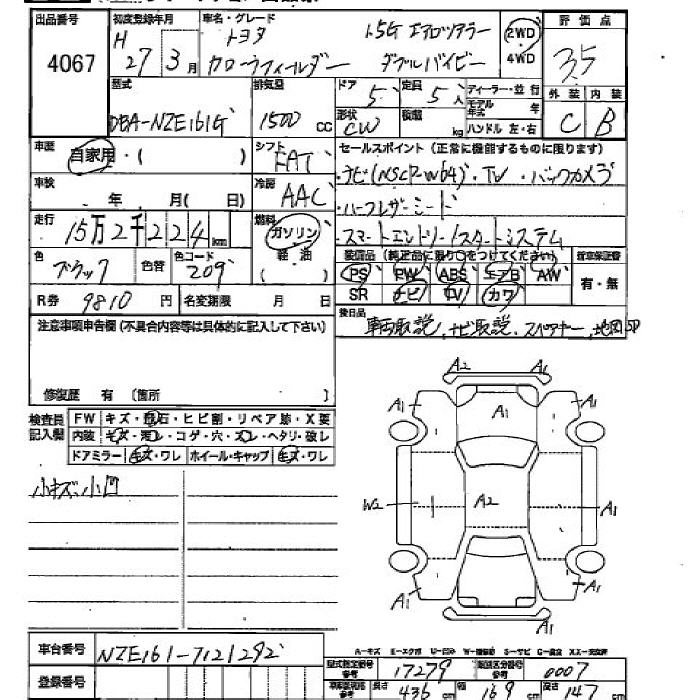 出品番号 初度登録年月 車名・グレード 評価点
4067 H 27 3月 トヨタ 1.5G エアロツアラー 2WD 3.5
カローラフィールダー ダブルバイビー 4WD
型式 排気量 ドア 5 定員 5人 ディーラー・並行 外装 内装
DBA-NZE161G 1500 CC 形状 CW 積載 kg モデル年式 年 C B
ハンドル 左・右
車歴 自家用・( ) シフト FAT セールスポイント (正常に機能するものに限ります)
・ナビ(NSCP-W64)・TV・バックカメラ
車検 年 月( 日) 冷房 AAC ・ハーフレザーシート
走行 15万2千224km 燃料 ガソリン ・スマートエントリー/スタートシステム
色 ブラック 色替 色コード 209 軽油 ( )
装備品 (純正品に限り○をつけてください) 新車保証書
PS PW ABS エアB AW 有・無
SR ナビ TV カワ
R券 9810円 名変期限 月 日
後日品 車両取説、ナビ取説、スペアキー、地図SD
注意事項申告欄 (不具合内容等は具体的に記入して下さい)
修復歴 有 〔箇所 〕
検査員記入欄 FW キズ・飛石・ヒビ割・リペア跡・X要
内装 キズ・汚レ・コゲ・穴・スレ・ヘタリ・破レ
ドアミラー キズ・ワレ ホイール・キャップ キズ・ワレ
小キズ、小凹
A2 A1
A1 A1 A1
W2 A2 A1
A1 A1
A1
車台番号 NZE161-7121292
A-キズ E-エクボ U-凹み W-補修跡 S-サビ C-腐食 XX-交換済
登録番号
型式指定番号 参考 17279 類別区分番号 参考 0007
長さ 436cm 幅 169cm 高さ 147cm